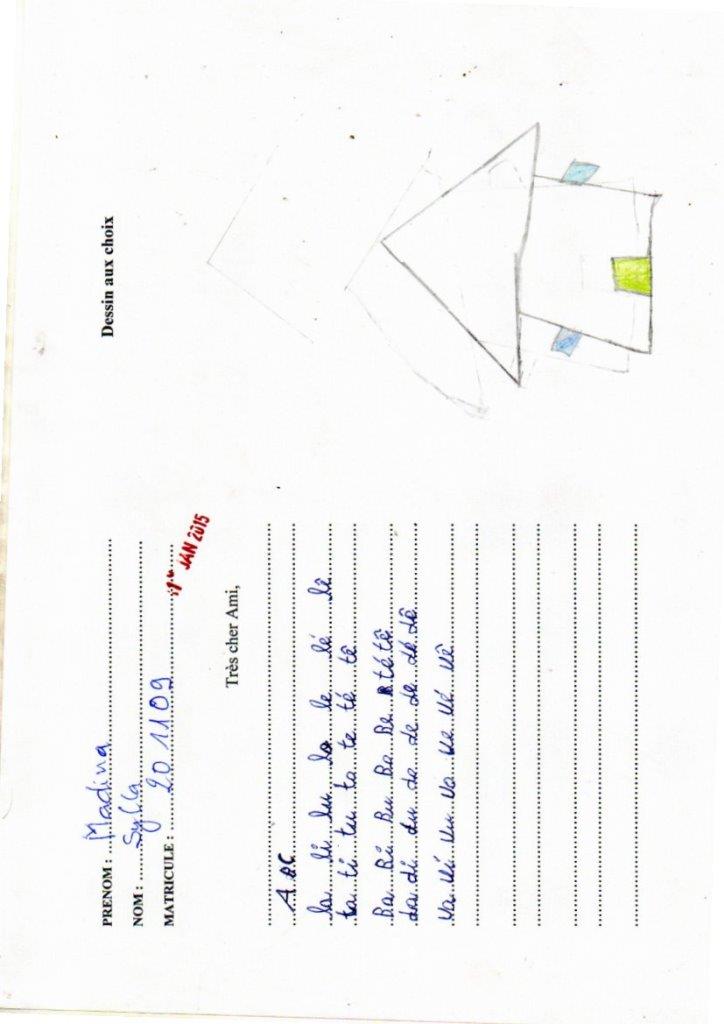 PRENOM : Madina
NOM : Sylla
MATRICULE : 20 11 09
JAN 2015
Très cher Ami,
A BC
la li lu lo le lé lê
ta ti tu to te té tê
Ra Ri Ru Ro Re té tê
da di du do de de dé dê
va vi vu vo ve vé vê
Dessin aux choix